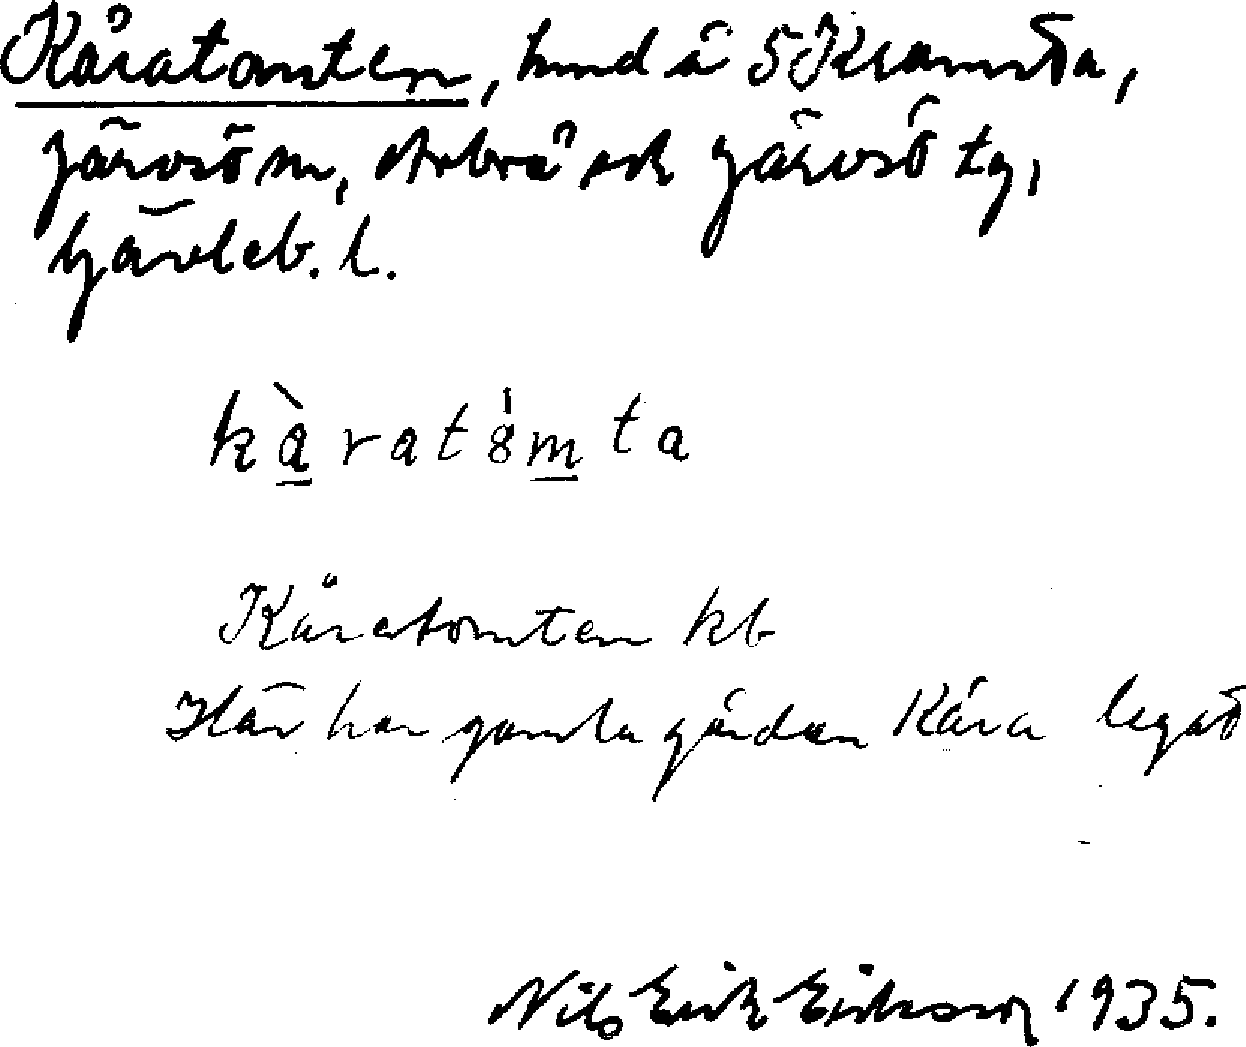 Kåratomten, hmd å 5 Kramsta,
Järvsö sn, Arbrå och Järvsö tg,
Gävleb. l.
kàratömta
Kåratomten kb
Här har gamla gården Kåra legat
Nils Erik Eriksson 1935.